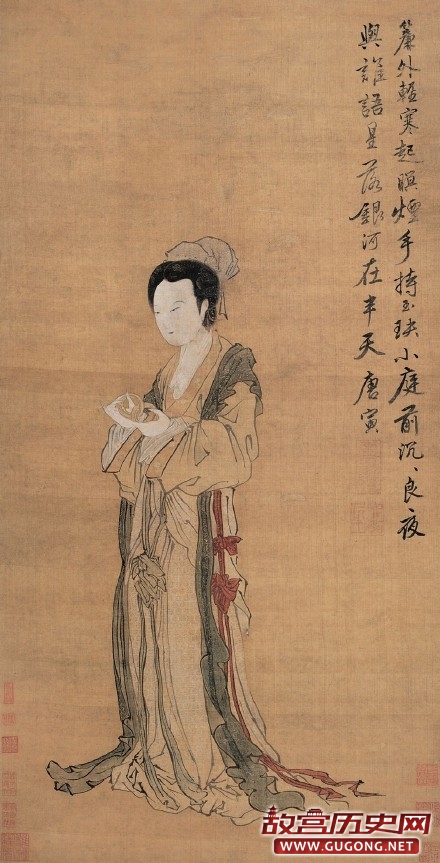 簾外輕寒起暝煙手持玉玦小庭前沉、良夜
與誰語星落銀河在半天唐寅
故宫历史网
WWW.GUGONG.NET